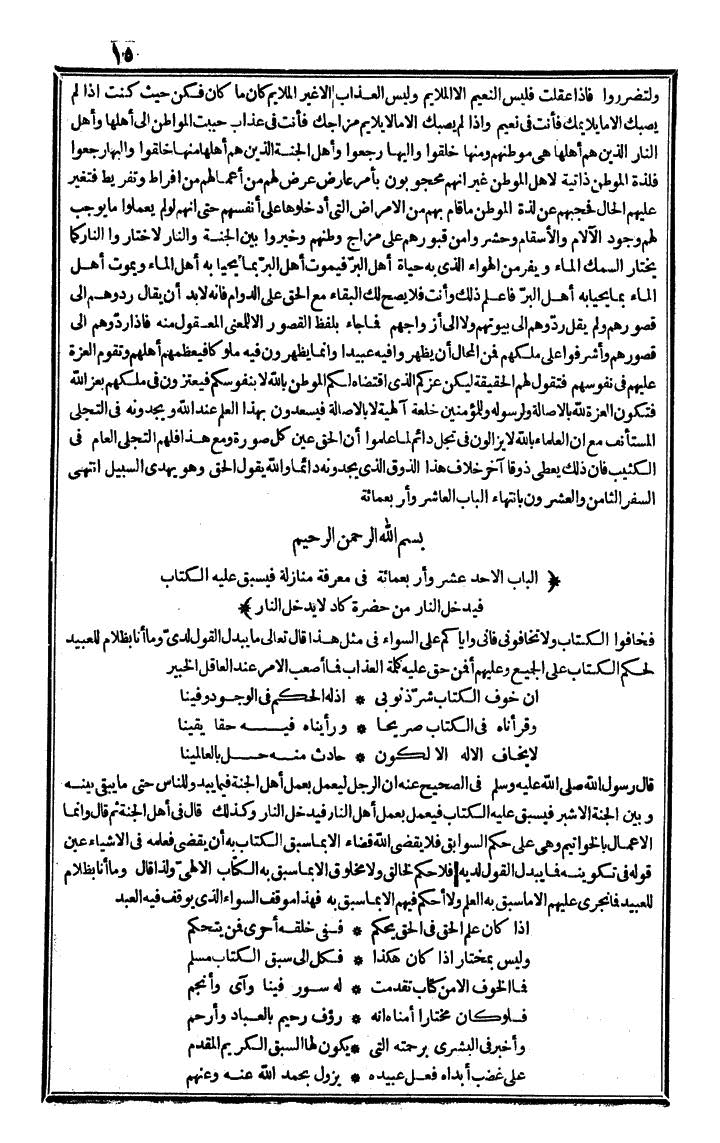 ١٥
ولتضرروا فاذا عقلت فليس النعيم الا الملايم وليس العذاب الا غير الملايم كان ما كان فكن حيث كنت اذا لم
يصبك الا ما يلايمك فأنت فى نعيم واذا لم يصبك الا ما لا يلايم مزاجك فأنت فى عذاب حببت المواطن الى أهلها وأهل
النار الذين هم أهلها هى موطنهم ومنها خلقوا واليها رجعوا وأهل الجنة الذين هم أهلها منها خلقوا واليها رجعوا
فلذة الموطن ذاتية لاهل الموطن غير انهم محجوبون بأمر عارض عرض لهم من أعمالهم من افراط وتفريط فتغير
عليهم الحال فحجبهم عن لذة الموطن ما قام بهم من الامراض التى أدخلوها على أنفسهم حتى انهم لو لم يعملوا ما يوجب
لهم وجود الآلام والأسقام وحشروا من قبورهم على مزاج وطنهم وخيروا بين الجنة والنار لاختاروا النار كما
يختار السمك الماء ويفر من الهواء الذى به حياة أهل البر فيموت أهل البر بما يحيا به أهل الماء ويموت أهل
الماء بما يحيا به أهل البرّ فاعلم ذلك وأنت فلا يصح لك البقاء مع الحق على الدوام فانه لابد أن يقال ردوهم الى
قصورهم ولم يقل ردّوهم الى بيوتهم ولا الى أزواجهم فجاء بلفظ القصور الا للمعنى المعقول منه فاذا ردّوهم الى
قصورهم وأشرفوا على ملكهم فمن المحال أن يظهروا فيه عبيدا وانما يظهرون فيه ملوكا فيعظمهم أهلهم وتقوم العزة
عليهم فى نفوسهم فتقول لهم الحقيقة ليكن عزكم الذى اقتضاه لكم الموطن بالله لا بنفوسكم فيعتزون فى ملكهم بعز الله
فتكون العزة لله بالاصالة ولرسوله وللمؤمنين خلعة آلهية لا بالاصالة فيسعدون بهذا العلم عند الله ويجدونه فى التجلى
المستأنف مع ان العلماء بالله لا يزالون فى تجل دائم لما علموا أن الحق عين كل صورة ومع هذا فلهم التجلى العام فى
الكثيب فان ذلك يعطى ذوقا آخر خلاف هذا الذوق الذى يجدونه دائما والله يقول الحق وهو يهدى السبيل انتهى
السفر الثامن والعشرون بانتهاء الباب العاشر وأربعمائة
بسم الله الرحمن الرحيم
﴿ الباب الاحد عشر وأربعمائة فى معرفة منازلة فيسبق عليه الكتاب
فيدخل النار من حضرة كاد لا يدخل النار ﴾
فخافوا الكتاب ولا تخافونى فانى واياكم على السواء فى مثل هذا قال تعالى ما يبدل القول لدىّ وما أنا بظلام للعبيد
لحكم الكتاب على الجميع وعليهم أفمن حق عليه كلمة العذاب فما أصعب الامر عند العاقل الخبير
ان خوف الكتاب شرّذ نومى * اذ له الحكم فى الوجود وفينا
وقرأناه فى الكتاب صريحا * ورأيناه فيه حقا يقينا
لا يخاف الاله الا لكون * حادث منه حل بالعالمينا
قال رسول الله صلى الله عليه وسلم فى الصحيح عنه ان الرجل ليعمل بعمل أهل الجنة فيما يبدو للناس حتى ما يبقى بينه
وبين الجنة الا شبر فيسبق عليه الكتاب فيعمل بعمل أهل النار فيدخل النار وكذلك قال فى أهل الجنة ثم قال وانما
الاعمال بالخواتيم وهى على حكم السوابق فلا يقضى الله قضاء الا بما سبق الكتاب به أن يقضى فعلمه فى الاشياء عين
قوله فى تكوينه فما يبدل القول لديه فلا حكم لخالق ولا مخلوق الا بما سبق به الكتاب الالهىّ ولذا قال وما أنا بظلام
للعبيد فما نجرى عليهم الا ما سبق به العلم ولا أحكم فيهم الا بما سبق به فهذا موقف السواء الذى يوقف فيه العبد
اذا كان علم الحق فى الحق يحكم * فنى خلقه أحرى فمن يتحكم
وليس بمختار اذا كان هكذا * فكل الى سبق الكتاب مسلم
فما الخوف الا من كتاب تقدمت * له سور فينا وآى وأنجم
فلو كان مختارا أمناه انه * رؤف رحيم بالعباد وأرحم
وأخبر فى البشرى برحمته التى * يكون لها السبق الكريم المقدم
على غضب أبداه فعل عبيده * يزول بحمد الله عنه وعنهم